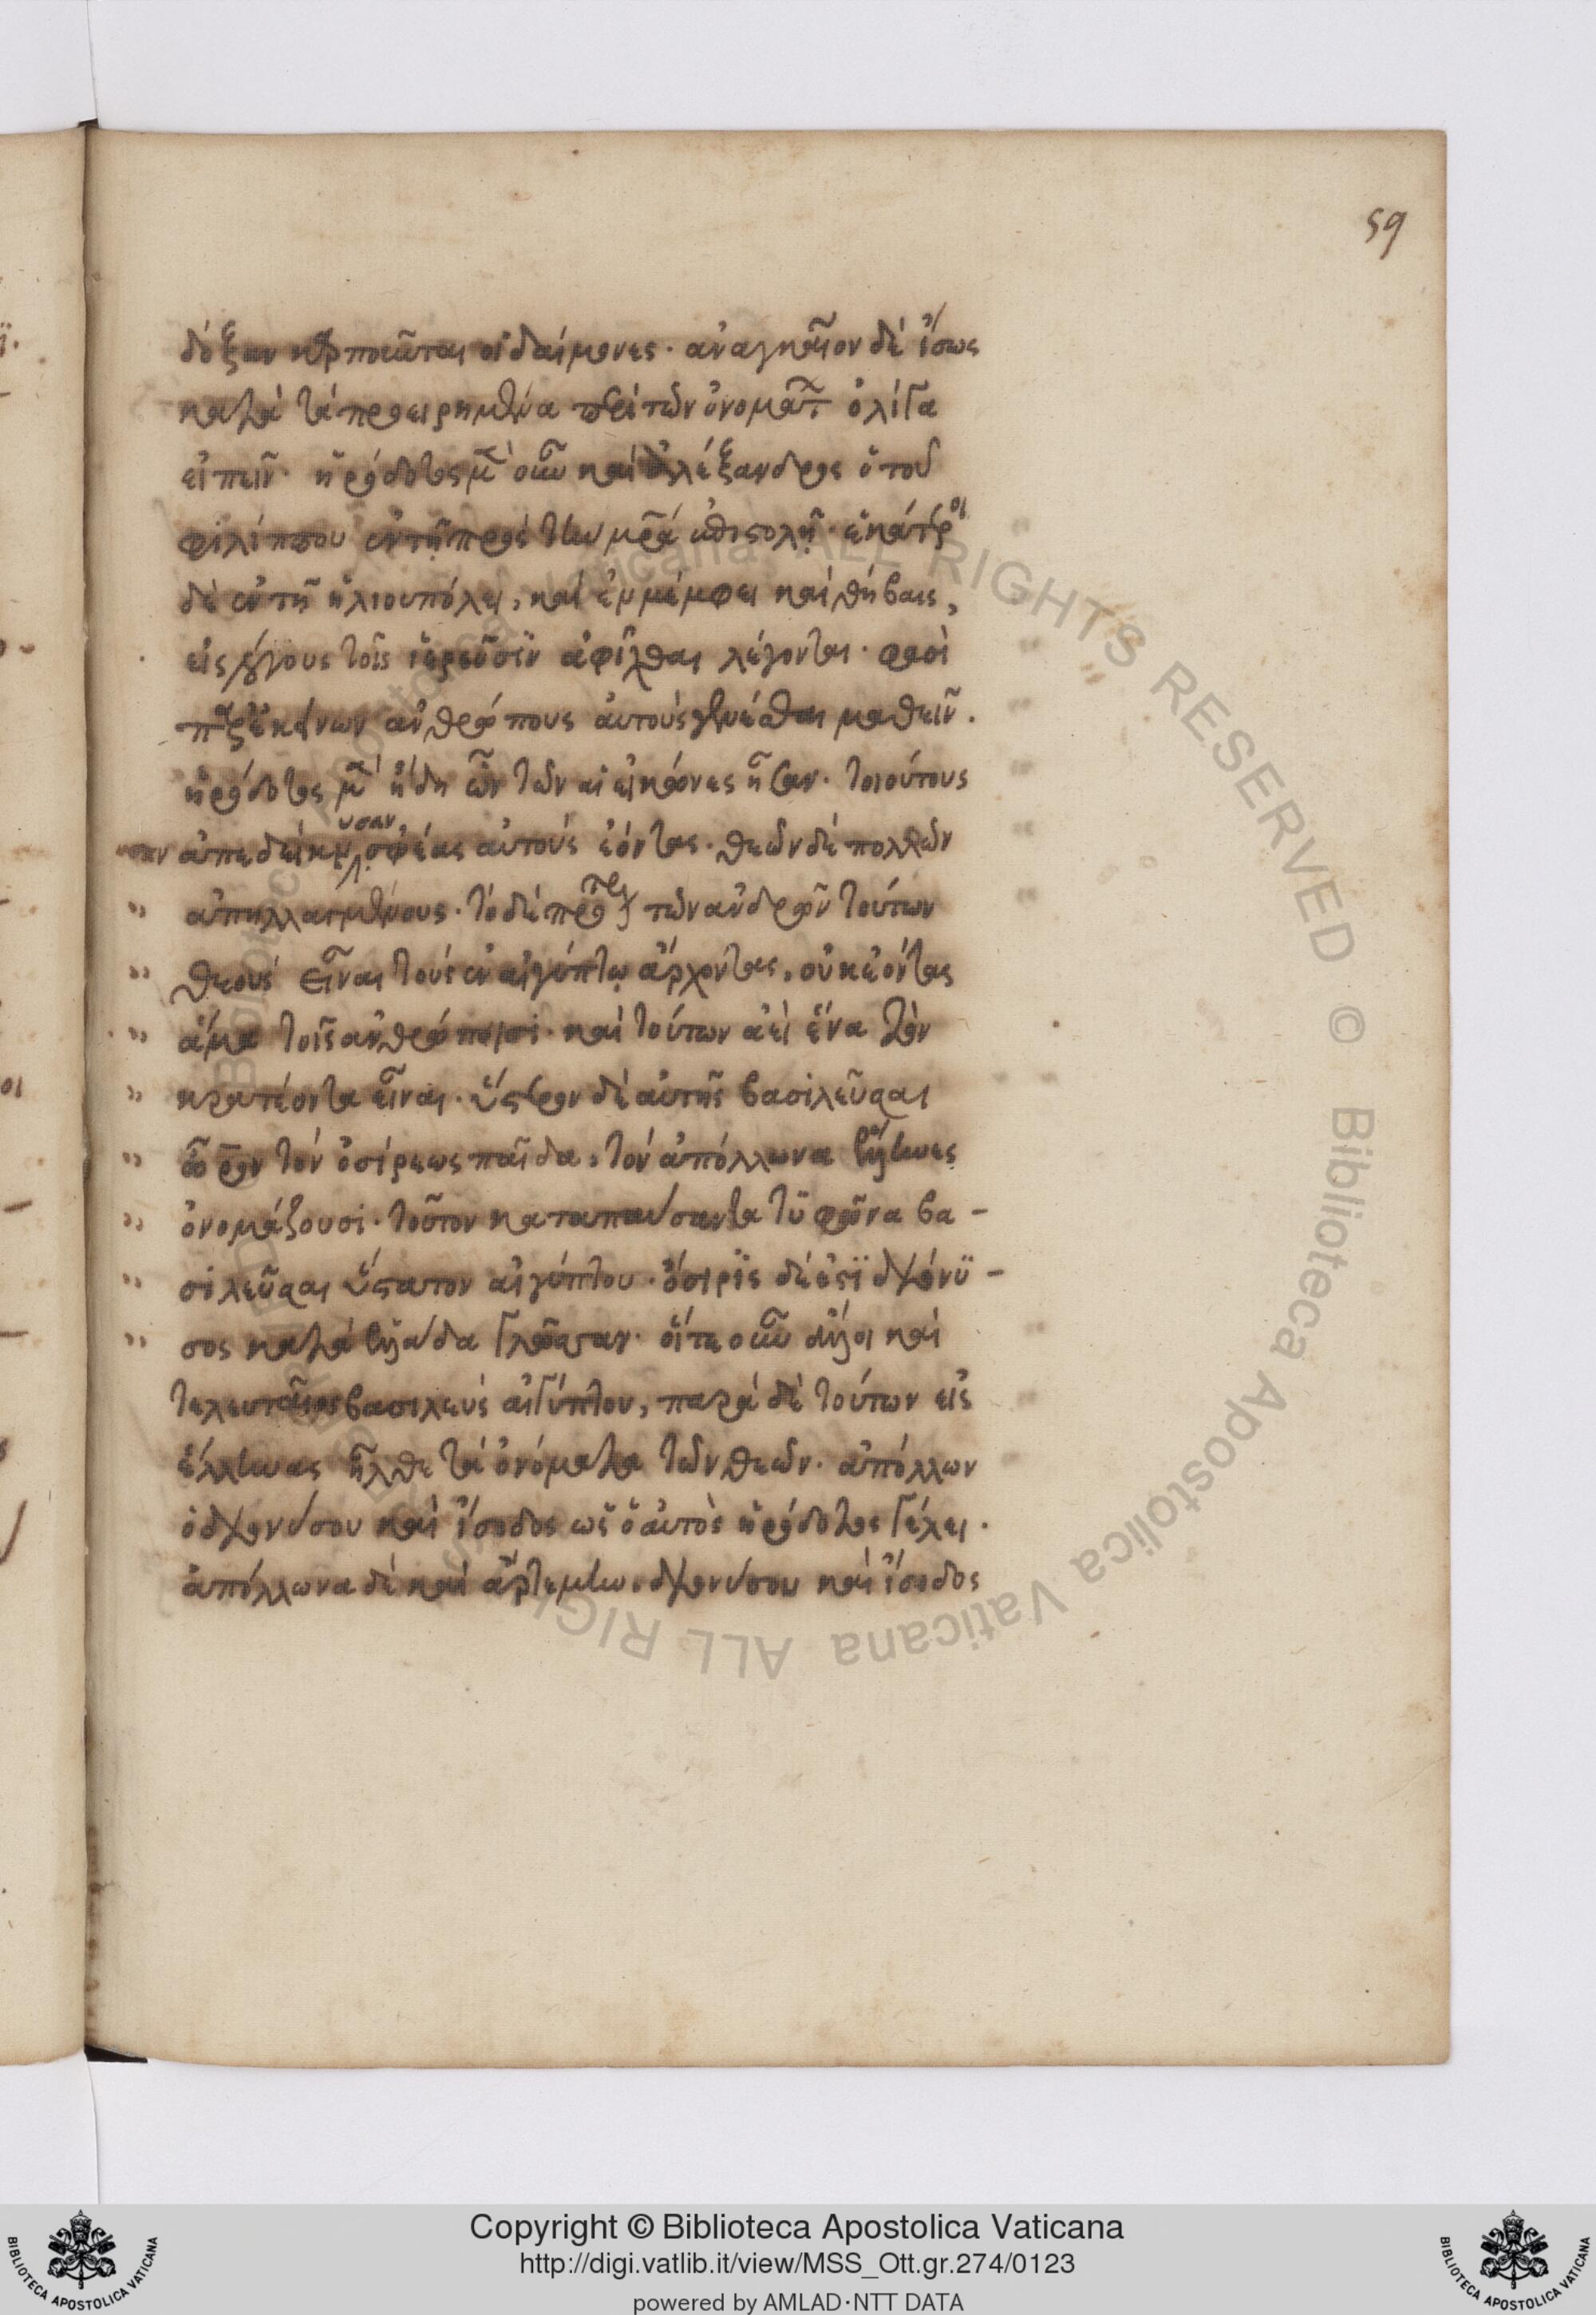 59
δόξαν καρποῦνται οἱ δαίμονες· ἀναγκαῖον δὲ ἴσως
κατὰ τὰ προειρημένα περὶ τῶν ὀνομάτ ὀλίγα
εἰπεῖν· ἡρόδοτος μ οὖν καὶ ἀλέξανδρος ὁ τοῦ
φιλίππου ἐν τῇ πρὸς τὴν μρα ἐπιστολῇ· ἑκάτεροι
δὲ ἐν τῇ ἡλιουπόλει, καὶ ἐμ μέμφει καὶ θήβαις,
εἰς λόγους τοῖς ἱερεῦσιν ἀφῖχθαι λέγονται· φασὶ
παρ ἐκείνων ἀνθρώπους αὐτοὺς γενέσθαι μαθεῖν.
ἡρόδοτος μ ἤδη ὧν τῶν αἱ εἰκόνες ἦσαν· τοιούτους
σαν ἀπεδείκνυσαν σφέας αὐτοὺς ἐόντας· θεῶν δὲ πολλὸν
" ἀπηλλαγμένους· τὸ δὲ πρότερον τῶν ἀνδρῶν τούτων
" θεοὺς εἶναι τοὺς ἐν αἰγύπτῳ ἄρχοντας, οὐκ ἐόντας
" ἅμα τοῖς ἀνθρώποισι· καὶ τούτων ἀεὶ ἕνα τὸν
" κρατέοντα εἶναι· ὕστερον δὲ αὐτῆς βασιλεῦσαι
" ὦρον τὸν ὀσίρεως παῖδα, τὸν ἀπόλλωνα ἕλληνες
" ὀνομάζουσι· τοῦτον καταπαύσαντα τυφῶνα βα-
" σιλεῦσαι ὕστατον αἰγύπτου· ὄσιρις δέ ἐστι διόνυ-
" σος κατὰ ἑλλάδα γλῶσσαν· οἵ τε οὖν ἄλλοι καὶ
τελευταῖος βασιλεὺς αἰγύπτου, παρὰ δὲ τούτων εἰς
ἕλληνας ἦλθε τὰ ὀνόματα τῶν θεῶν· ἀπόλλων
ὁ διονύσου καὶ ἴσιδος ὡς ὁ αὐτὸς ἡρόδοτος λέγει·
ἀπόλλωνα δὲ καὶ ἄρτεμιν, διονύσου καὶ ἴσιδος
Copyright © Biblioteca Apostolica Vaticana
http://digi.vatlib.it/view/MSS_Ott.gr.274/0123
powered by AMLAD·NTT DATA